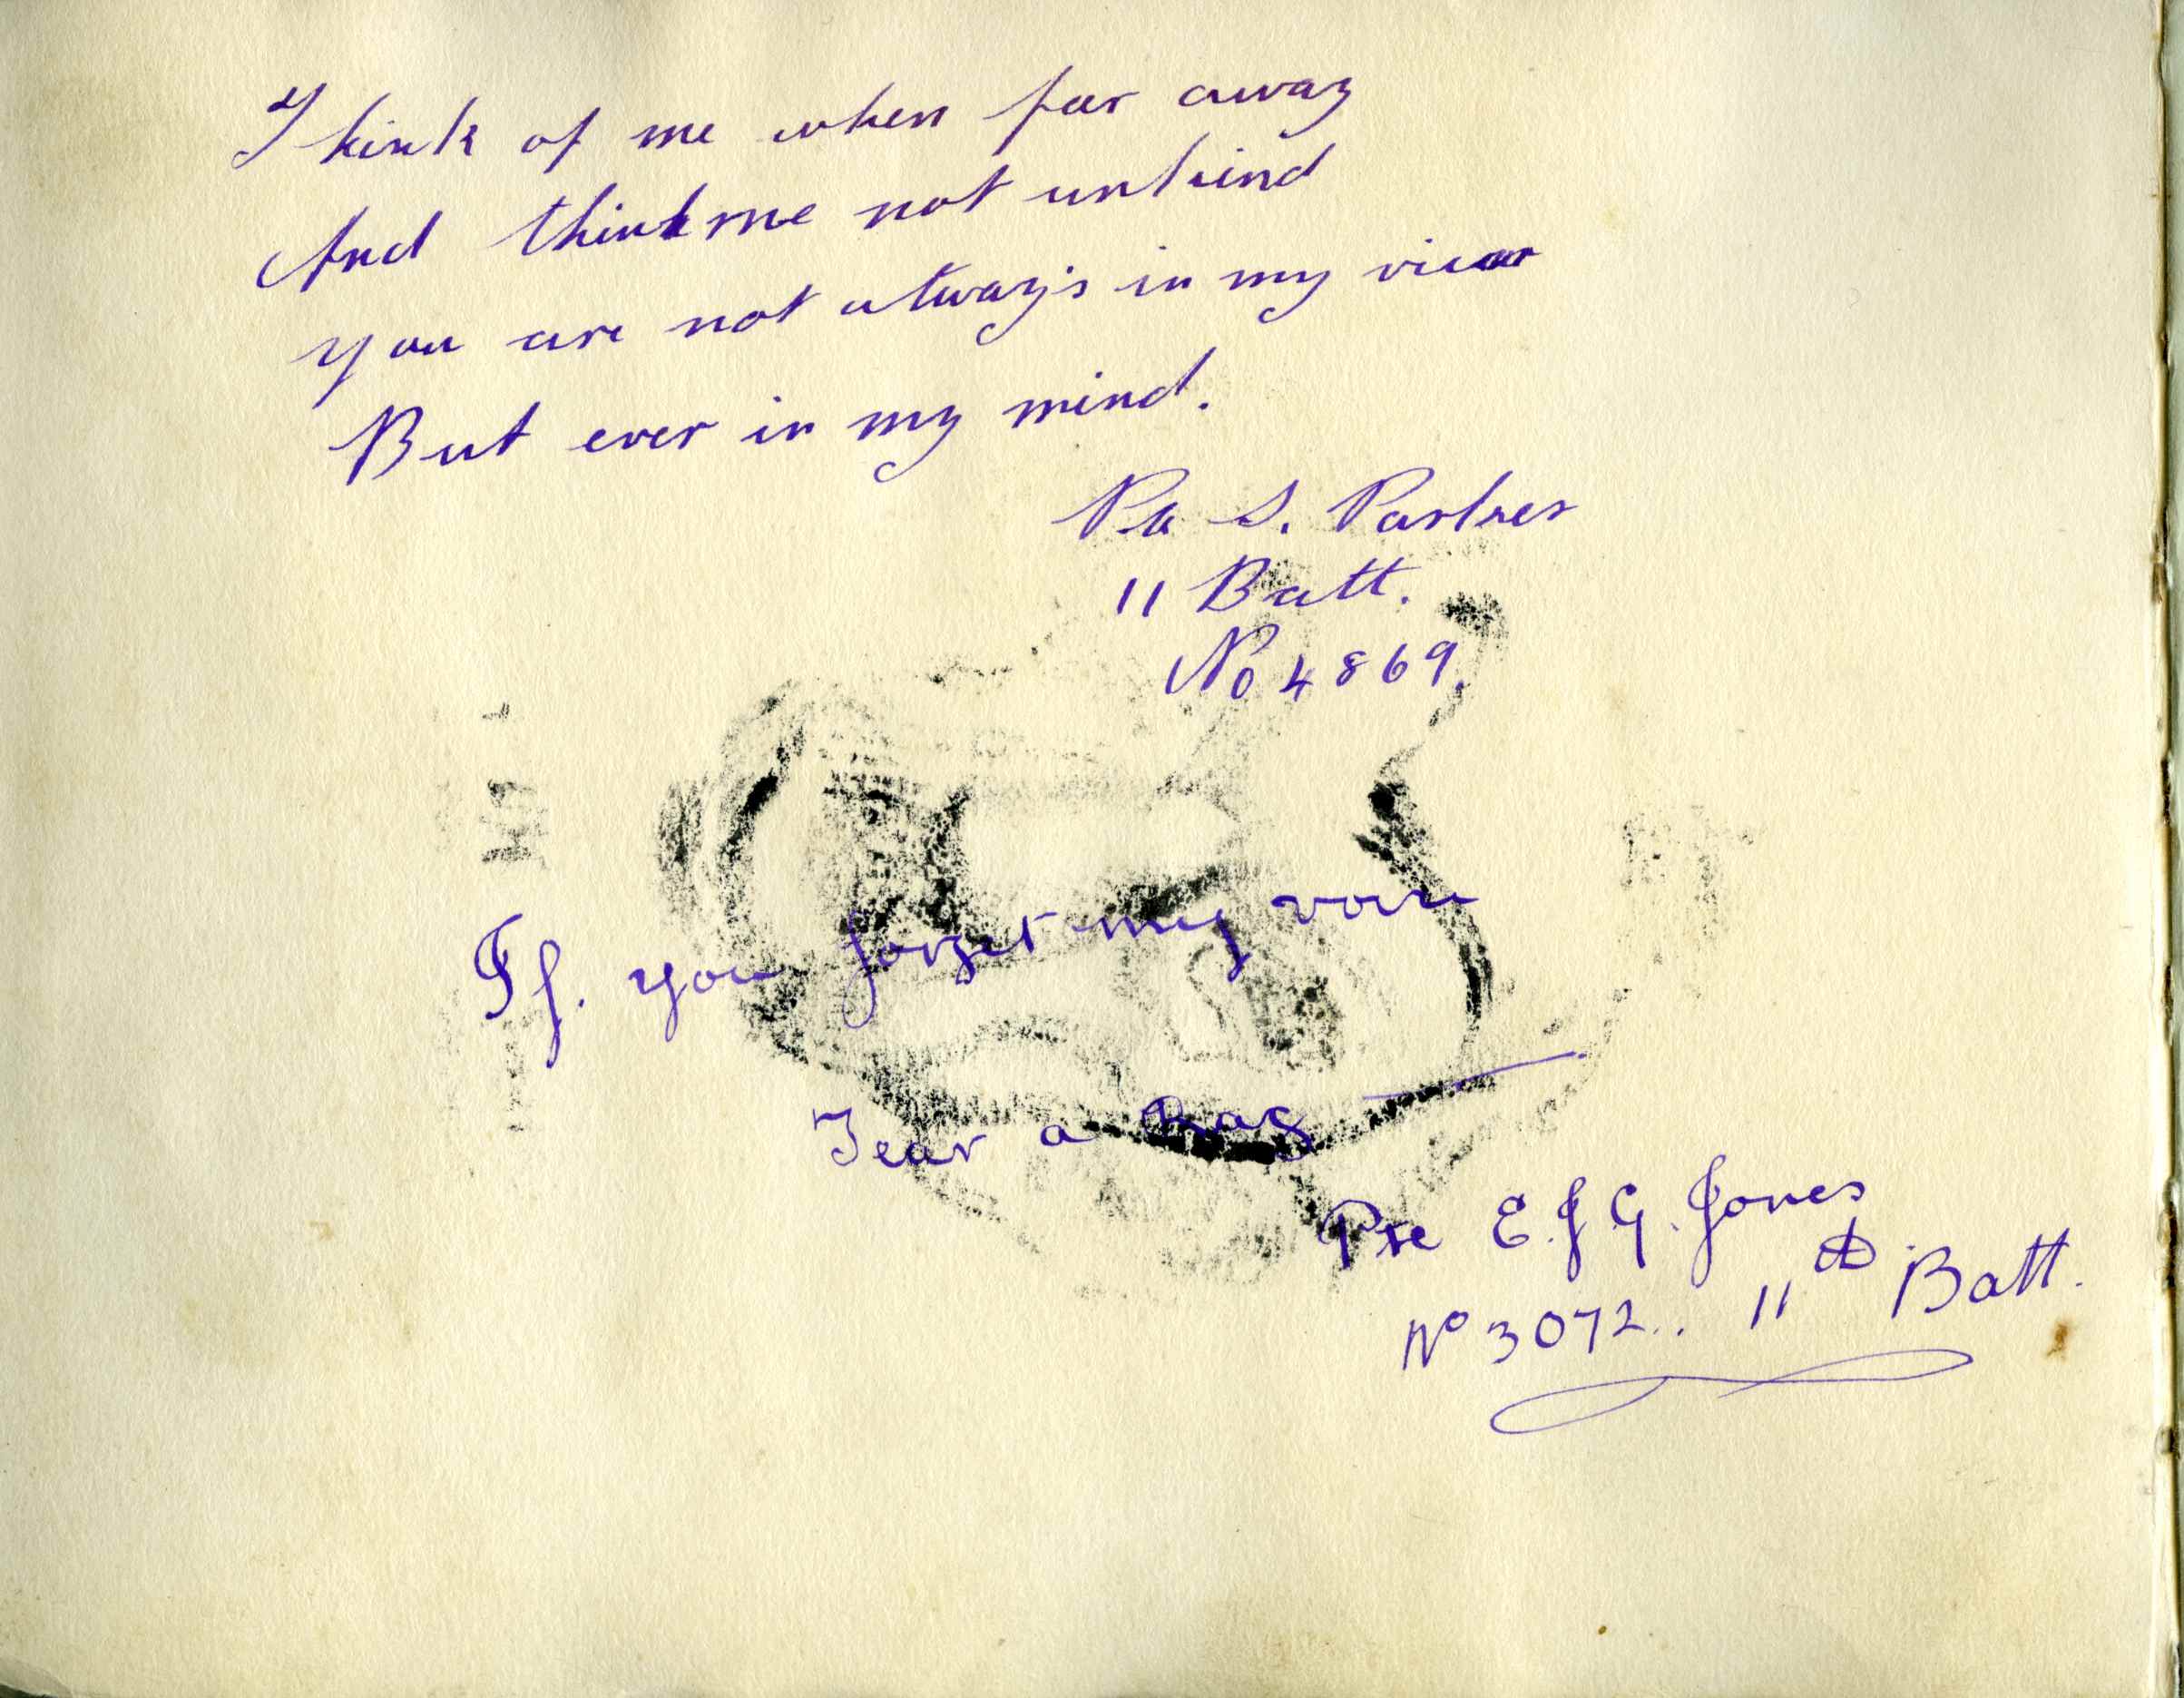 Think of me when far away
And think me not unkind
you are not always in my view
But ever in my mind.
S. Parkes
11 Batt.
No 4869.
If. you forget my voice
Tear a Rag
Pte E. J G. Jones
No 3072.. 11th Batt.